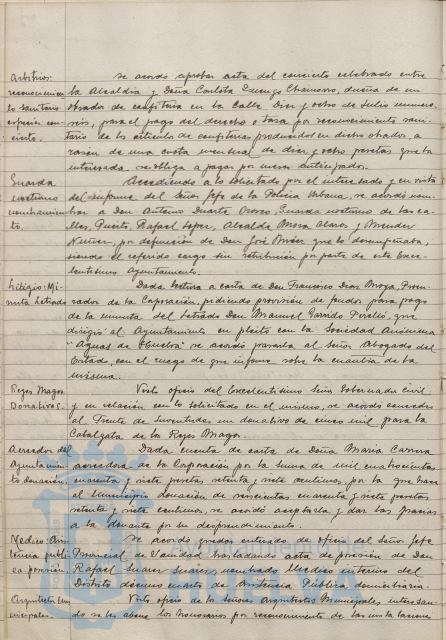 Arbitrios:
reconocimien
to sanitario
confi
cierto.
Se acordó aprobar acta del concierto celebrado entre
la Alcaldía y Doña Carlota Chamorro, dueña de un
obrador de confitería en la Calle Diez y ocho de Julio número
para el pago del derecho o tasa por reconocimiento sani-
tario de los artículos de confitería producidos en dicho obrador, a
razón de una cuota mensual de diez y ocho pesetas que la
interesada, se obliga a pagar por meses anticipados.
Guarda
nocturno
nombramien
to.
Accediendo a lo solicitado por el interesado y en vista
del informe del Señor Jefe de la Policía Urbana, se acordó nom-
brar a Don Antonio Duarte Orozco, Guarda nocturno de las ca-
lles, Puerto, Rafael López, Alcalde Mora Claros y Méndez
Núñez, por defunción de Don José que lo desempeñaba,
siendo el referido cargo sin retribución por parte de este Exce-
lentísimo Ayuntamiento.
Litigio: Mi-
nuta Letrado
Dada lectura a carta de Don Francisco Díaz Moya, Procu-
rador de la Corporación, pidiendo provisión de fondos para pago
de la minuta del Letrado Don Manuel Garrido Perelló, que
dirigió al Ayuntamiento en pleito con la Sociedad Anónima
"Aguas de Huelva" se acordó pasarla al Señor Abogado del
Estado con el ruego de que informe sobre la cuantía de la
misma.
Reyes Magos
Donativos.
Visto oficio del Excelentísimo Señor Gobernador Civil
y en relación con lo solicitado en el mismo, se acordó conceder
al Frente de Juventudes un donativo de cinco mil para la
Cabalgata de los Reyes Magos.
Acreedor del
Ayuntamien
to donación.
Dada cuenta de carta de Doña María Carmona
acreedora de la Corporación por la suma de mil cuatrocientas
cuarenta y siete pesetas setenta y siete céntimos, por la que hace
al Municipio donación de seiscientas cuarenta y siete pesetas
setenta y siete céntimos, se acordó aceptarla y dar las gracias
a la donante por su desprendimiento.
Médico: Asis
tencia públi
ca posesión.
Se acordó quedar enterado de oficio del Señor Jefe
Provincial de Sanidad trasladando acta de posesión de Don
Rafael Suárez Suárez, nombrado Médico interino del
Distrito décimo cuarto de Asistencia Pública domiciliaria.
Arquitectos Mu
nicipales.
Visto oficio de los Señores Arquitectos Municipales, interesan-
do se les abone los honorarios por reconocimiento de las instalaciones